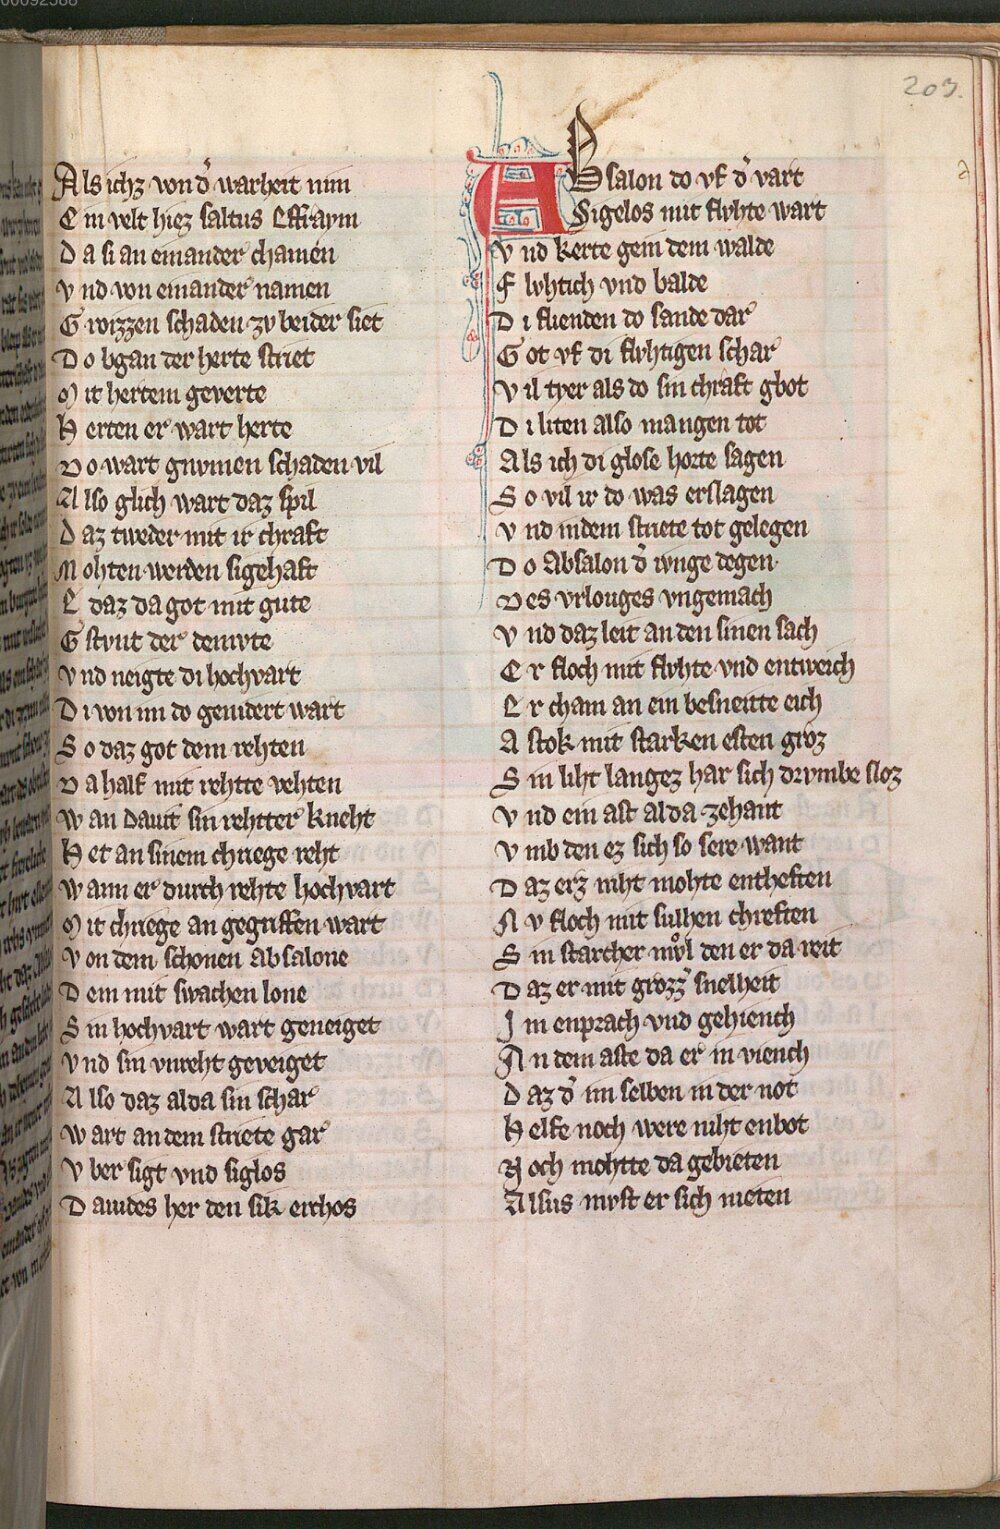 203.
Als ichz von d̓ warheit nim
Ein velt hiez saltus Effraym
Da si an einander chamen
Vnd von einander namen
Grozzen schaden zv beider siet
Do bgan der herte striet
Mit hertem geverte
Herten er wart herte
Do wart gnvmen schaden vil
Also glich wart daz spil
Daz tweder mit ir chraft
Mohten werden sigehaft
E daz da got mit gute
Gstvnt der demvte
Vnd neigte di hochvart
Di von im do genidert wart
So daz got dem rehten
Da half mit rehtte vehten
Wan Dauit sin rehtter kneht
Het an sinem chriege reht
Wann er durch rehte hochvart
Mit chriege an gegriffen wart
Von dem schonen absalone
Dem mit swachen lone
Sin hochvart wart geneiget
Vnd sin vnreht geveiget
Also daz alda sin schar
Wart an dem striete gar
Vber sigt vnd siglos
Dauides her den sik erchos
ABsalon do vf d̓ vart
Sigelos mit flvhte wart
Vnd kerte gein dem walde
Flvhtich vnd balde
Di flienden do sande dar
Got vf di flvhtigen schar
Vil tyer als do sin chraft gbot
Di liten also mangen tot
Als ich di glose horte sagen
So vil ir do was erslagen
Vnd in dem striete tot gelegen
Do Absalon d̓ ivnge degen
Des vrlouges vngemach
Vnd daz leit an den sinen sach
Er floch mit flvhte vnd entweich
Er cham an ein besneitte eich
A stok mit starken esten groz
Sin liht langez har sich drvmbe sloz
Vnd ein ast alda zehant
Vmb den ez sich so sere want
Daz erz niht mohte entheften
Nv floch mit sulhen chreften
Sin starcher mvͦl den er da reit
Daz er mit grozz̓ snelheit
Im enprach vnd gehiench
An dem aste da er in viench
Daz d̓ im selben in der not
Helfe noch were niht enbot
Noch mohtte da gebieten
Alsus mvst er sich nieten